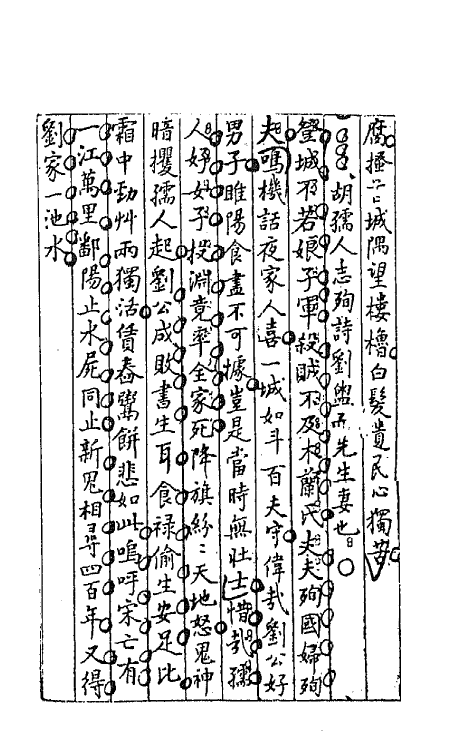 腐搔城隅望樓櫓白髮遺民心獨苦
胡孺人志殉詩劉先生妻也
城不若娘子軍殺賊不及木蘭氏夫夫殉國婦殉
夫鳴機話夜家人喜一城如斗百夫守偉哉劉公好
男子睢陽食盡不可據豈是當時無壯士惜哉孺
人好投淵竟率全家死降旗紛〻天地怒鬼神
暗攫孺人起劉公成敗書生耳食祿偷生安足比
霜中勁艸兩獨活賃舂鬻餅悲如此嗚呼宋亡有
一江萬里鄱陽止水屍同止新鬼相尋四百年又得
劉家一池水